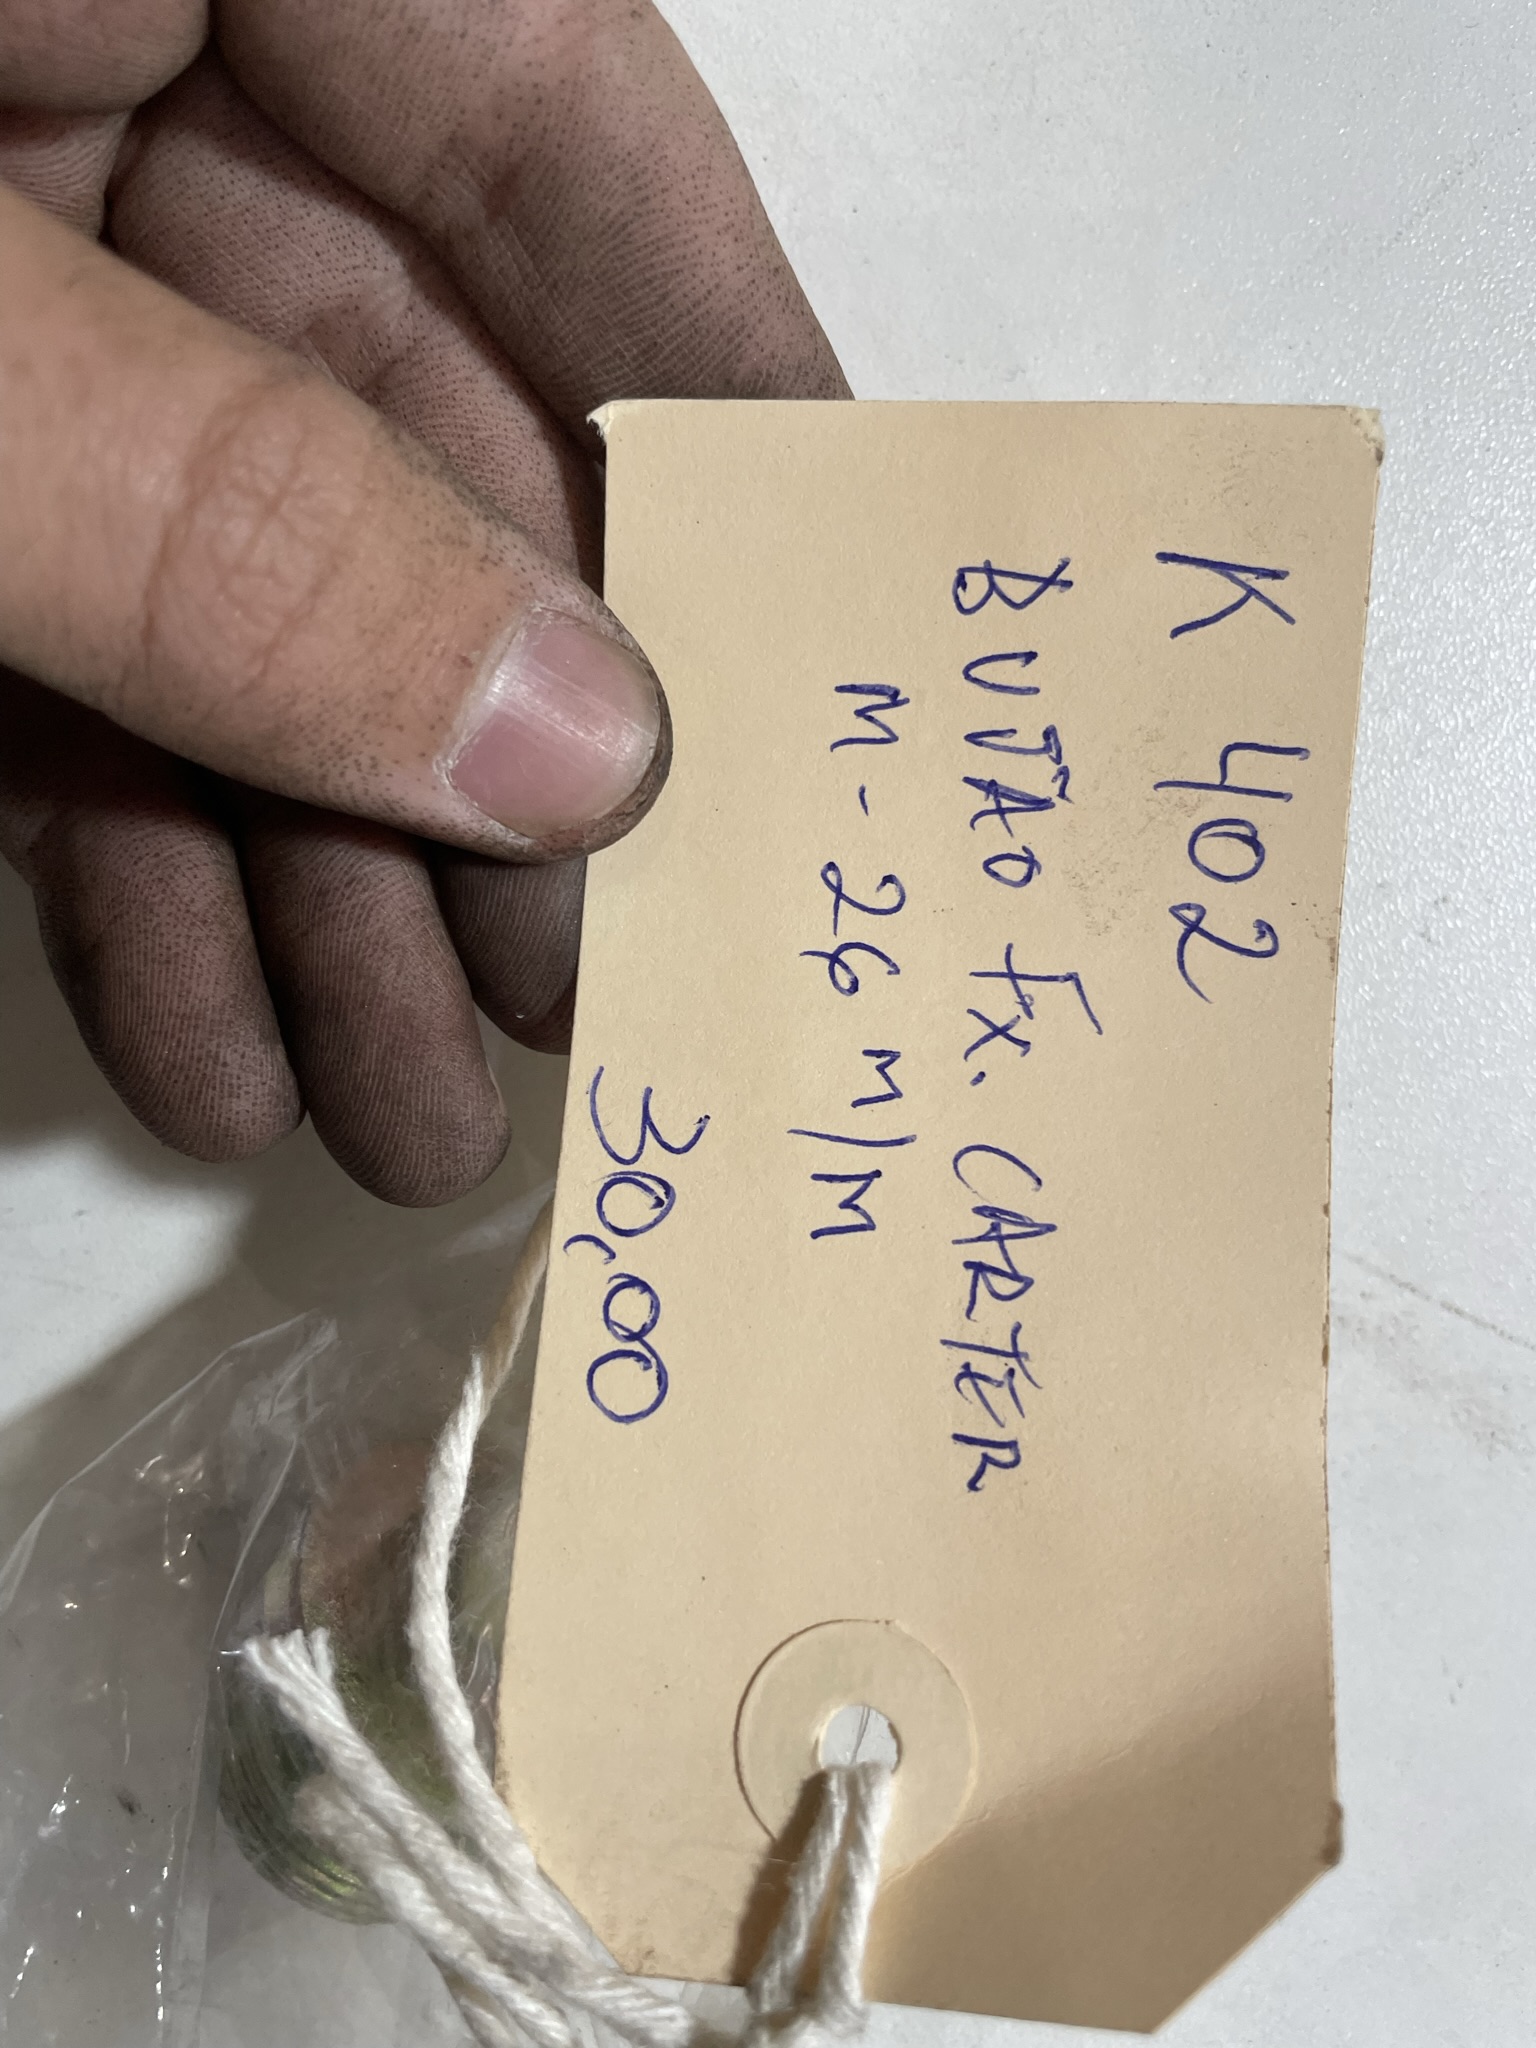 K 402
BUJÃO FX. CARTER
M - 26 M/M
30,00